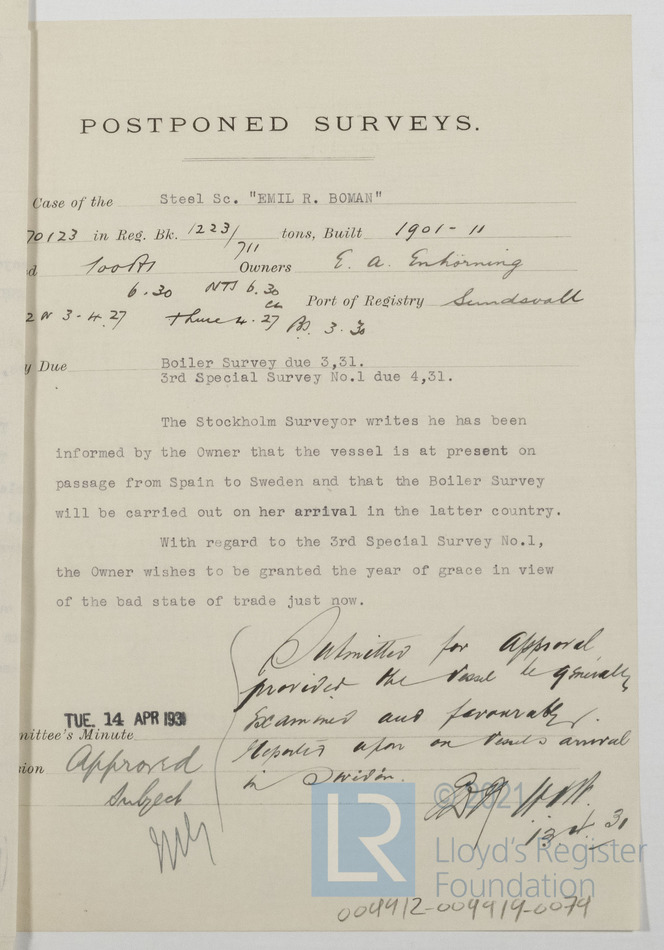 POSTPONED SURVEYS.
Case of the Steel Sc. "EMIL R. BOMAN"
70123 in Reg. Bk. 1223/711 tons, Built 1901-11
100A1 Owners E. A. Enhörning
6.30 NTS 6.30 Port of Registry Sundsvall
3-4.27 4.27 BS 3.30
y Due Boiler Survey due 3,31.
3rd Special Survey No.1 due 4,31.
The Stockholm Surveyor writes he has been
informed by the Owner that the vessel is at present on
passage from Spain to Sweden and that the Boiler Survey
will be carried out on her arrival in the latter country.
With regard to the 3rd Special Survey No.1,
the Owner wishes to be granted the year of grace in view
of the bad state of trade just now.
Submitted for approval
provided the vessel be generally
examined and favourably
reported upon on vessels arrival
in Sweden.
13.4.31
TUE. 14 APR 1931
mittee's Minute
Approved
Subject
© 2021
LR
Lloyd's Register
Foundation
004912-004919-0079